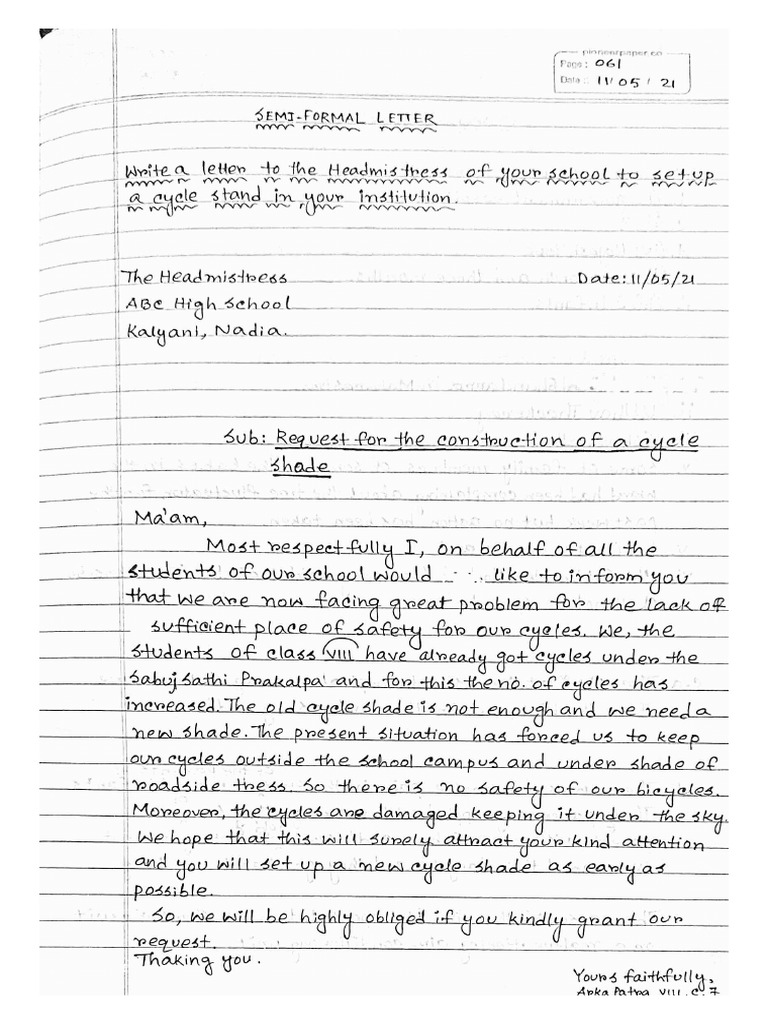 plannerpaper.co
Page: 061
Date: 11/05/21
SEMI-FORMAL LETTER
Write a letter to the Headmistress of your school to set up
a cycle stand in your institution.
The Headmistress Date: 11/05/21
ABC High School
Kalyani, Nadia.
Sub: Request for the construction of a cycle
shade
Ma'am,
Most respectfully I, on behalf of all the
students of our school would ..... like to inform you
that we are now facing great problem for the lack of
sufficient place of safety for our cycles. We, the
students of class VIII have already got cycles under the
Sabuj Sathi Prakalpa' and for this the no. of cycles has
increased. The old cycle shade is not enough and we need a
new shade. The present situation has forced us to keep
our cycles outside the school campus and under shade of
roadside tress. So there is no safety of our bicycles.
Moreover, the cycles are damaged keeping it under the sky.
We hope that this will surely attract your kind attention
and you will set up a new cycle shade as early as
possible.
So, we will be highly obliged if you kindly grant our
request.
Thaking you.
Yours faithfully,
Arka Patra VIII. C. 7